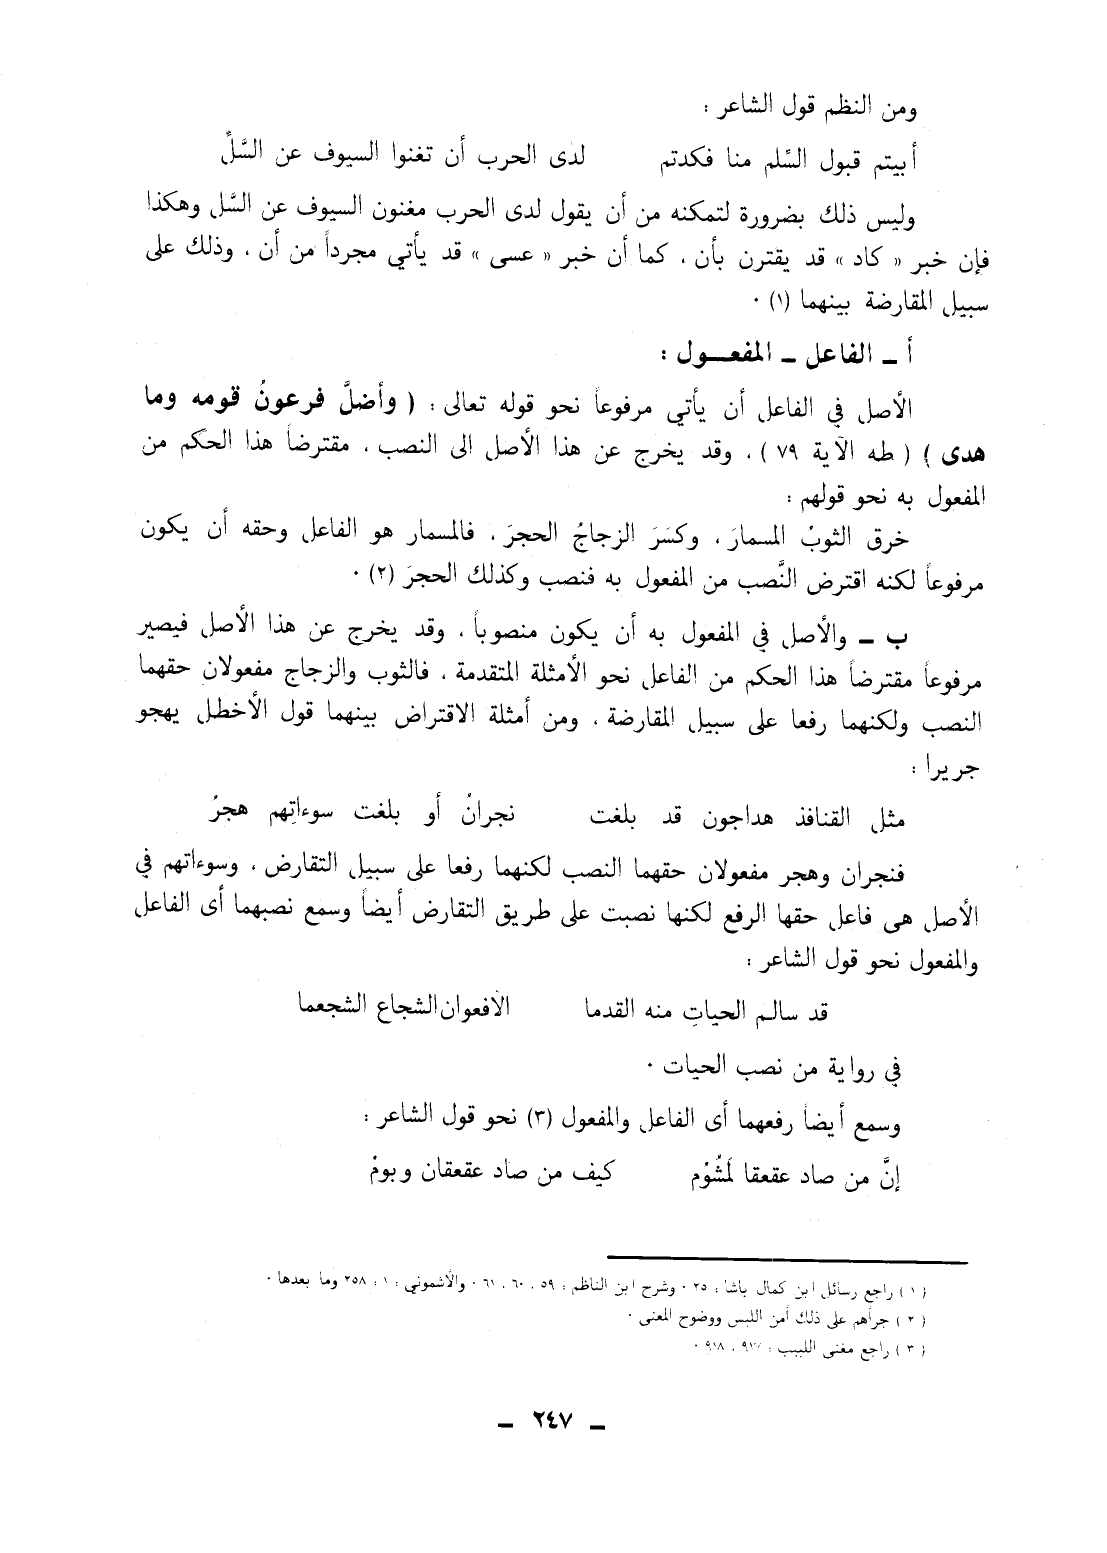 ومن النظم قول الشاعر :
أبيتم قبول السِّلم منا فكدتم لدى الحرب أن تغنوا السيوف عن السَّلِّ
وليس ذلك بضرورة لتمكنه من أن يقول لدى الحرب مغنون السيوف عن السَّل وهكذا
فإن خبر « كاد » قد يقترن بأن ، كما أن خبر « عسى » قد يأتي مجرداً من أن ، وذلك على
سبيل المقارضة بينهما (١) ٠
أ ـ الفاعل ـ المفعـــول :
الأصل في الفاعل أن يأتي مرفوعاً نحو قوله تعالى : ( وأضلَّ فرعونُ قومه وما
هدى ) ( طه الآية ٧٩ ) ، وقد يخرج عن هذا الأصل الى النصب ، مقترضاً هذا الحكم من
المفعول به نحو قولهم :
خرق الثوبُ المسمارَ ، وكسَرَ الزجاجُ الحجرَ ، فالمسمار هو الفاعل وحقه أن يكون
مرفوعاً لكنه اقترض النَّصب من المفعول به فنصب وكذلك الحجرَ (٢) ٠
ب ـ والأصل في المفعول به أن يكون منصوباً ، وقد يخرج عن هذا الأصل فيصير
مرفوعاً مقترضاً هذا الحكم من الفاعل نحو الأمثلة المتقدمة ، فالثوب والزجاج مفعولان حقهما
النصب ولكنهما رفعا على سبيل المقارضة ، ومن أمثلة الاقتراض بينهما قول الأخطل يهجو
جريرا :
مثل القنافذ هداجون قد بلغت نجرانُ أو بلغت سوءاتِهم هجرُ
فنجران وهجر مفعولان حقهما النصب لكنهما رفعا على سبيل التقارض ، وسوءاتهم في
الأصل هى فاعل حقها الرفع لكنها نصبت على طريق التقارض أيضاً وسمع نصبهما أى الفاعل
والمفعول نحو قول الشاعر :
قد سالم الحياتِ منه القدما الأفعوان الشجاع الشجعما
في رواية من نصب الحيات ٠
وسمع أيضاً رفعهما أى الفاعل والمفعول (٣) نحو قول الشاعر :
إنَّ من صاد عقعقا لَمَشُوْم كيف من صاد عقعقان وبومُ
( ١ ) راجع رسائل ابن كمال باشا : ٢٥ ٠ وشرح ابن الناظم : ٥٩ ، ٦٠ ، ٦١ ٠ والأشموني : ١ : ٢٥٨ وما بعدها ٠
( ٢ ) جرأهم على ذلك أمن اللبس ووضوح المعنى ٠
( ٣ ) راجع مغنى اللبيب : ٩١٧ ، ٩١٨ ٠
ـ ٢٤٧ ـ